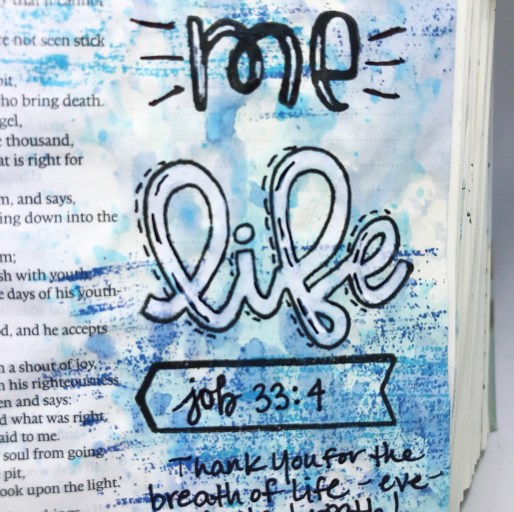 me
life
job 33:4
Thank you for the
breath of life - eve-
e not seen stick
it,
ho bring death.
gel,
thousand,
at is right for
m, and says,
ing down into the
m;
sh with youth;
e days of his youth-
d, and he accepts
n a shout of joy,
n his righteousness
en and says:
d what was right,
aid to me.
soul from going
pit,
ook upon the light.'